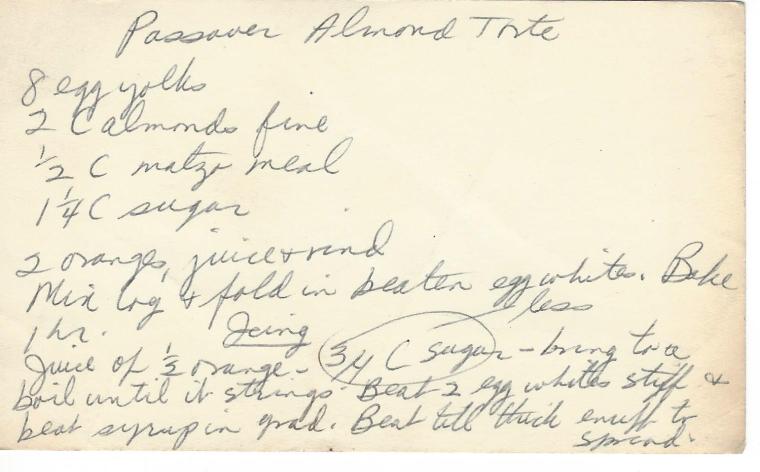 Passover Almond Torte
8 egg yolks
2 C almonds fine
1/2 C matzo meal
1 1/4 C sugar
2 oranges, juice & rind
Mix ing & fold in beaten egg whites. Bake
1 hr. Icing less
Juice of 1/2 orange - 3/4 C sugar - bring to a
boil until it strings. Beat 2 egg whites stiff &
beat syrup in grad. Beat till thick enuff to
spread.